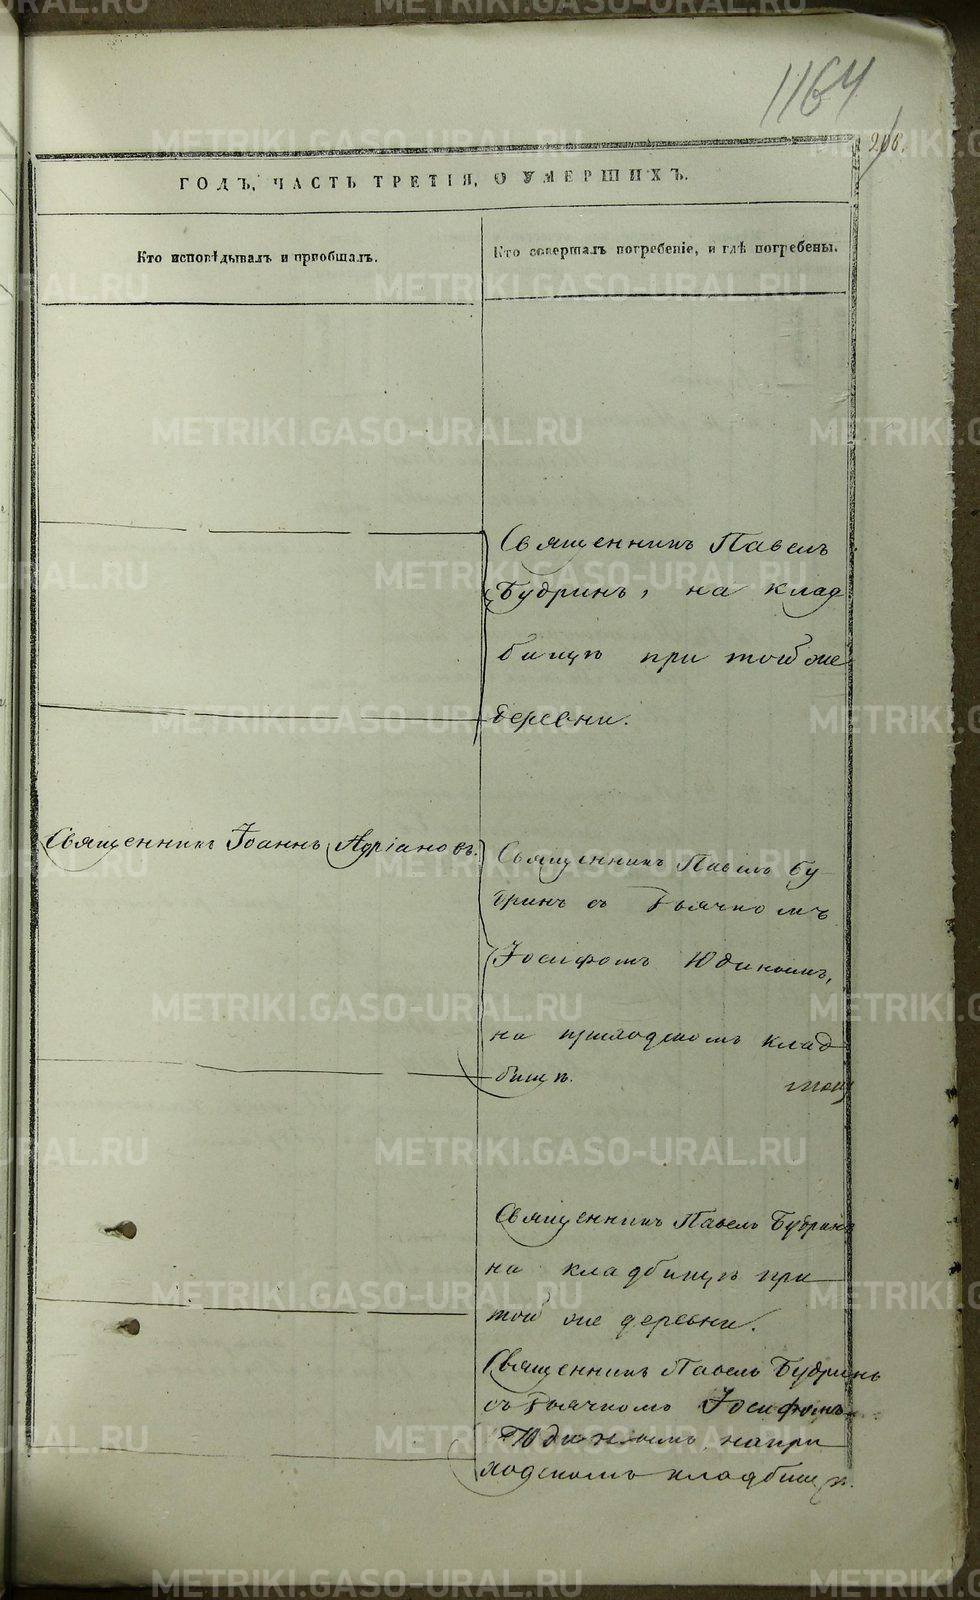 1164
ГОДЪ, ЧАСТЬ ТРЕТІЯ, О УМЕРШИХЪ.
Кто исповѣдывалъ и пріобщалъ.
Кто совершалъ погребеніе, и гдѣ погребены.
Священникъ Павелъ
Будринъ, на клад
бищѣ при той же
деревни.
Священникъ Іоаннъ Адріановъ.
Священникъ Павелъ Бу
дринъ съ Дьячкомъ
Іосифомъ Юдинымъ,
на приходскомъ клад
бищѣ.
Священникъ Павелъ Будринъ
на кладбищѣ при
той же деревни.
Священникъ Павелъ Будринъ
съ Дьячкомъ Іосифомъ
Юдинымъ, на при
ходскомъ кладбищѣ.
METRIKI.GASO-URAL.RU